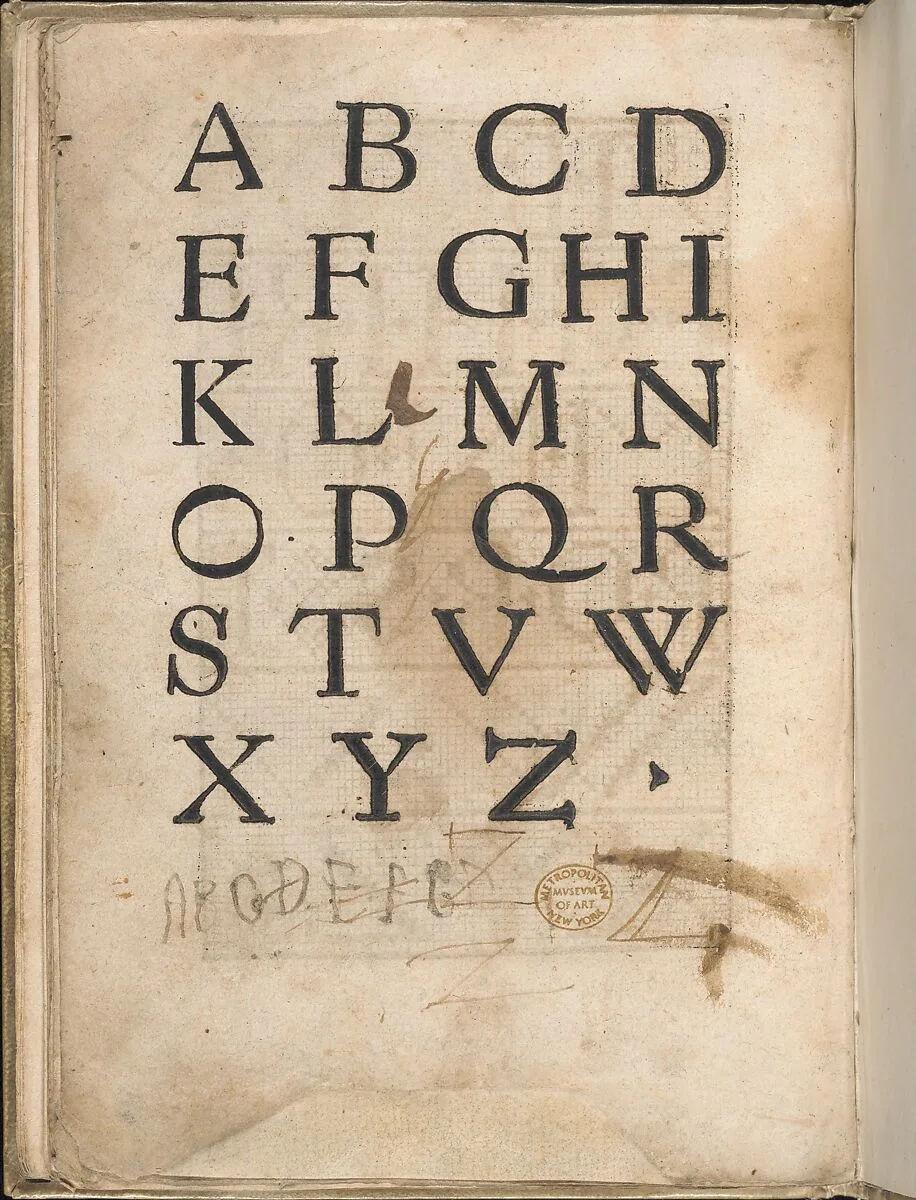 A B C D
E F G H I
K L M N
O P Q R
S T V W
X Y Z
A B C D E F G
Z
METROPOLITAN
MVSEVM
OF ART
NEW YORK
Z
Z